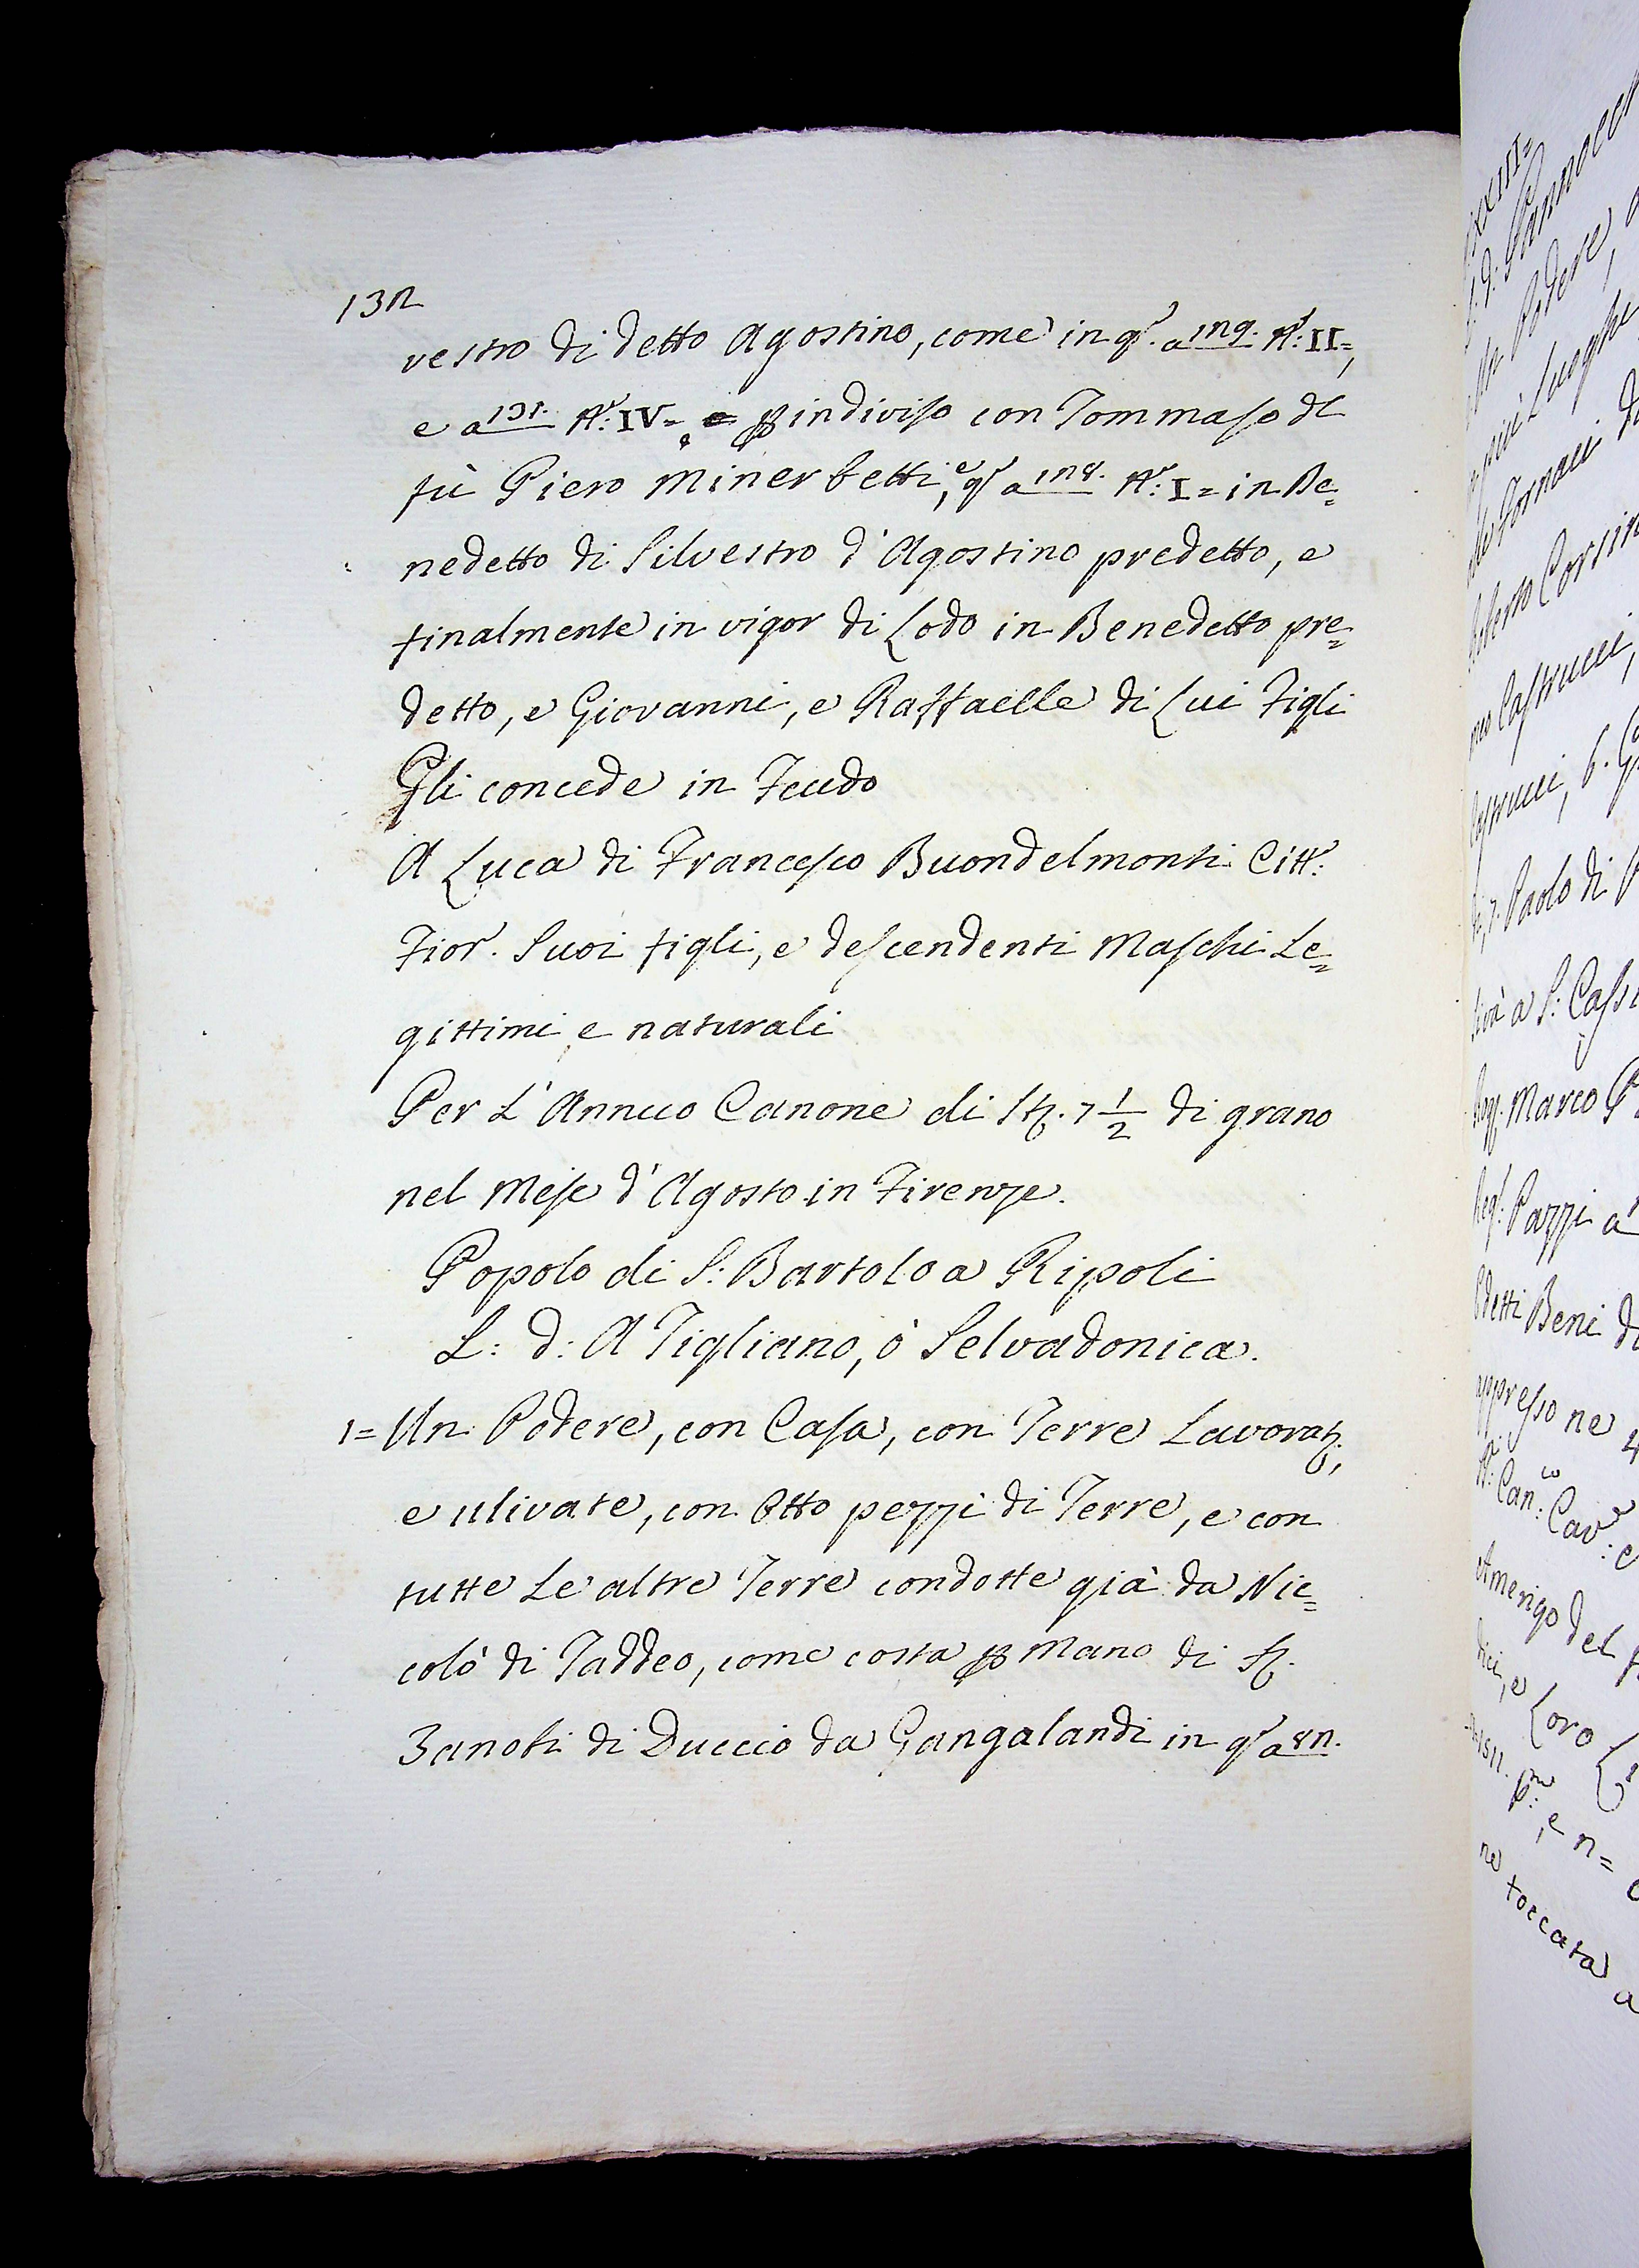 132
vestro di detto Agostino, come in qo. a 129. No: II=,
e a 131. No: IV= e p indiviso con Tommaso dl
fù Piero Minerbetti, e qo a 128. No: I= in Be=
nedetto di Silvestro d'Agostino predetto, e
finalmente in vigor di Lodo in Benedetto pre=
detto, e Giovanni, e Raffaelle di Lui Figli
Gli concede in Feudo
A Luca di Francesco Buondelmonti Citt:
Fior. Suoi figli, e descendenti Maschi Le=
gittimi e naturali
Per L'Annuo Canone di Sta. 7 1/2 di grano
nel Mese d'Agosto in Firenze.
Popolo di S: Bartolo a Ripoli
L: d: A Tigliano, ò Selvadonica.
1= Un Podere, con Casa, con Terre Lavorat,
e ulivate, con Otto pezzi di Terre, e con
tutte Le altre Terre condotte già da Nic=
colò di Taddeo, come costa p Mano di
Zanobi di Duccio da Gangalandi in qo a 82.
Podere
più Luoghi
Fornaci
Corsin
Castrucci,
Paolo di
a S: Cass
Marco
Pazzi a
detti Beni
appresso ne
Can:co Cav:e
Amerigo del
dici, e Loro
e n=
ne toccata a